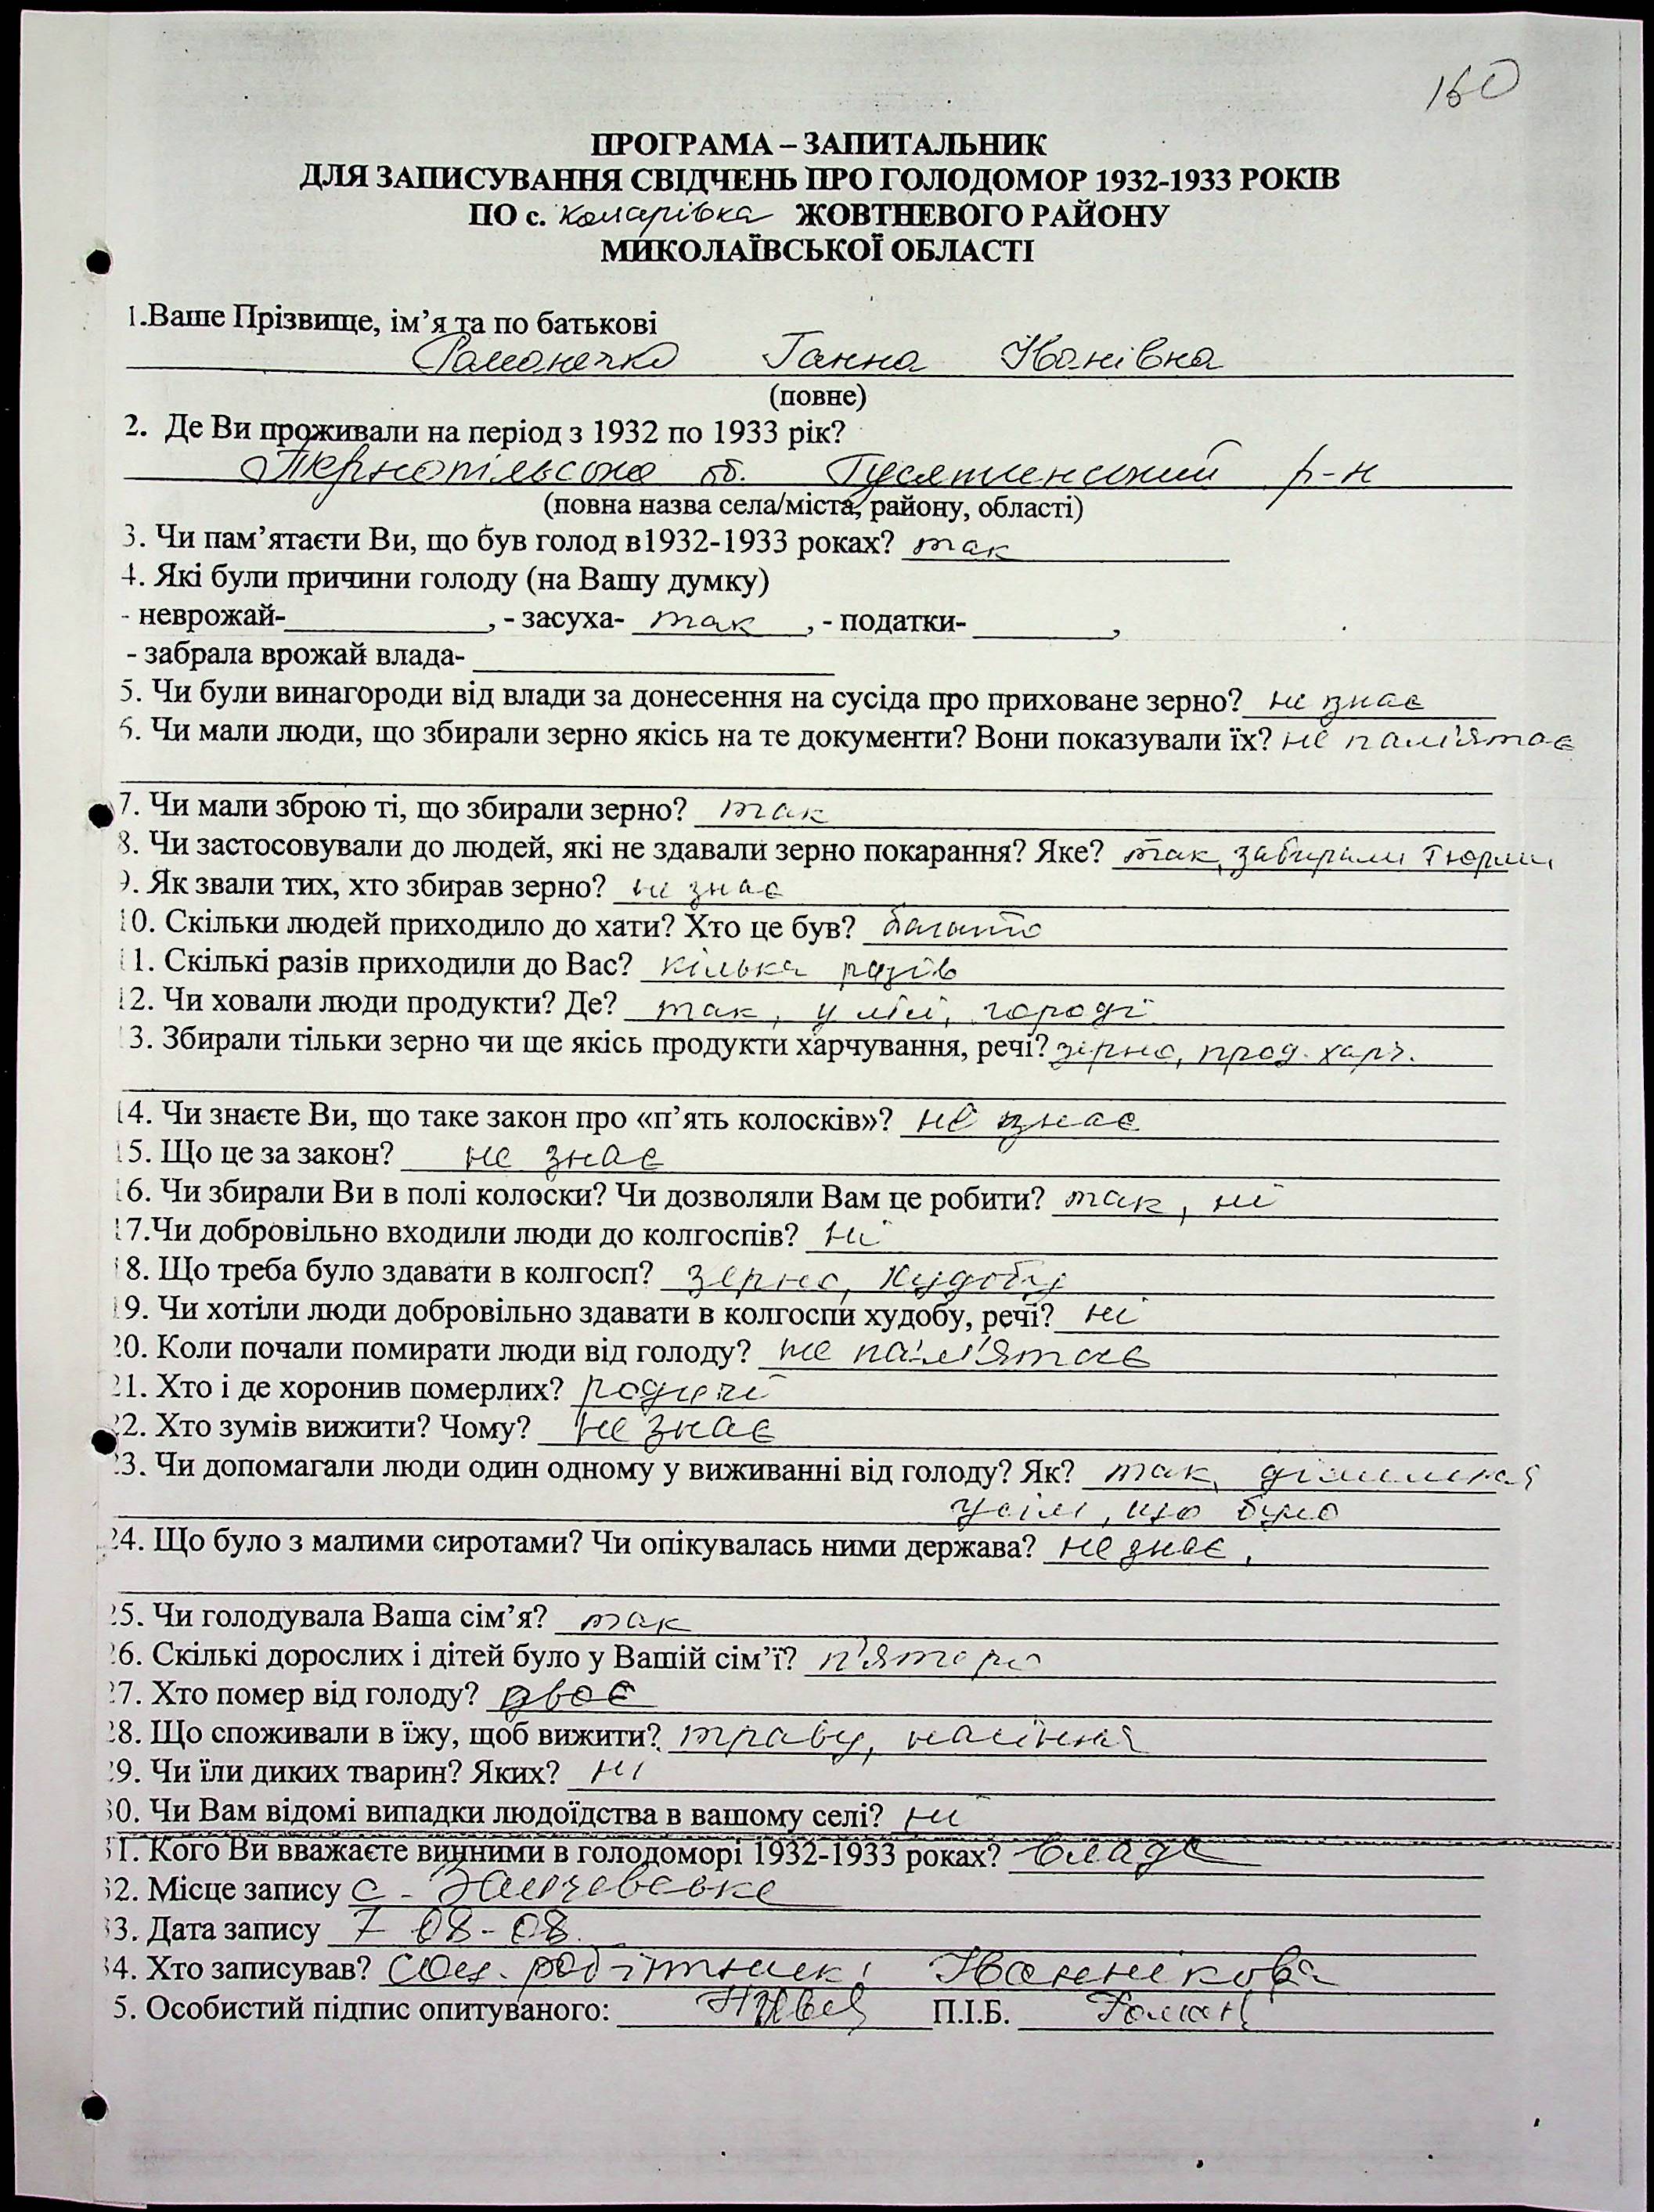 160
ПРОГРАМА – ЗАПИТАЛЬНИК
ДЛЯ ЗАПИСУВАННЯ СВІДЧЕНЬ ПРО ГОЛОДОМОР 1932-1933 РОКІВ
ПО с. Комарівка ЖОВТНЕВОГО РАЙОНУ
МИКОЛАЇВСЬКОЇ ОБЛАСТІ
1.Ваше Прізвище, ім’я та по батькові
Романечко Ганна Іванівна
(повне)
2. Де Ви проживали на період з 1932 по 1933 рік?
Тернопільська об. Гусятинський р-н
(повна назва села/міста, району, області)
3. Чи пам’ятаєти Ви, що був голод в1932-1933 роках? так
4. Які були причини голоду (на Вашу думку)
- неврожай-____, - засуха- так, - податки-____,
- забрала врожай влада-
5. Чи були винагороди від влади за донесення на сусіда про приховане зерно? не знає
6. Чи мали люди, що збирали зерно якісь на те документи? Вони показували їх? не пам'ятає
7. Чи мали зброю ті, що збирали зерно? так
8. Чи застосовували до людей, які не здавали зерно покарання? Яке? так, забирали тюрми
9. Як звали тих, хто збирав зерно? не знає
10. Скільки людей приходило до хати? Хто це був? багато
11. Скількі разів приходили до Вас? кілька разів
12. Чи ховали люди продукти? Де? так, у ямі, городі
13. Збирали тільки зерно чи ще якісь продукти харчування, речі? зерно, прод. харч.
14. Чи знаєте Ви, що таке закон про «п’ять колосків»? не знає
15. Що це за закон? не знає
16. Чи збирали Ви в полі колоски? Чи дозволяли Вам це робити? так, ні
17.Чи добровільно входили люди до колгоспів? ні
18. Що треба було здавати в колгосп? зерно, худобу
19. Чи хотіли люди добровільно здавати в колгоспи худобу, речі? ні
20. Коли почали помирати люди від голоду? не пам'ятає
21. Хто і де хоронив померлих? родичі
22. Хто зумів вижити? Чому? не знає
23. Чи допомагали люди один одному у виживанні від голоду? Як? так, ділилися
усім, що було
24. Що було з малими сиротами? Чи опікувалась ними держава? не знає.
25. Чи голодувала Ваша сім’я? так
26. Скількі дорослих і дітей було у Вашій сім’ї? п'ятеро
27. Хто помер від голоду? двоє
28. Що споживали в їжу, щоб вижити? траву, насіння
29. Чи їли диких тварин? Яких? ні
30. Чи Вам відомі випадки людоїдства в вашому селі? ні
31. Кого Ви вважаєте винними в голодоморі 1932-1933 роках? владу
32. Місце запису с.
33. Дата запису 7-08-08
34. Хто записував? соц. робітник Іваннікова
5. Особистий підпис опитуваного: П.І.Б. Роман